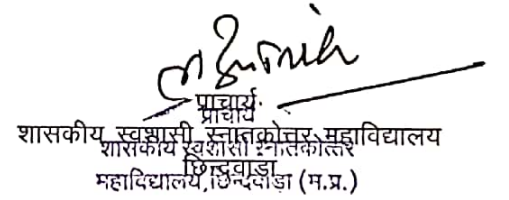 प्राचार्य
प्राचार्य
शासकीय स्वशासी स्नातकोत्तर महाविद्यालय
शासकीय स्वशासी स्नातकोत्तर
छिन्दवाड़ा
महाविद्यालय, छिन्दवाड़ा (म.प्र.)